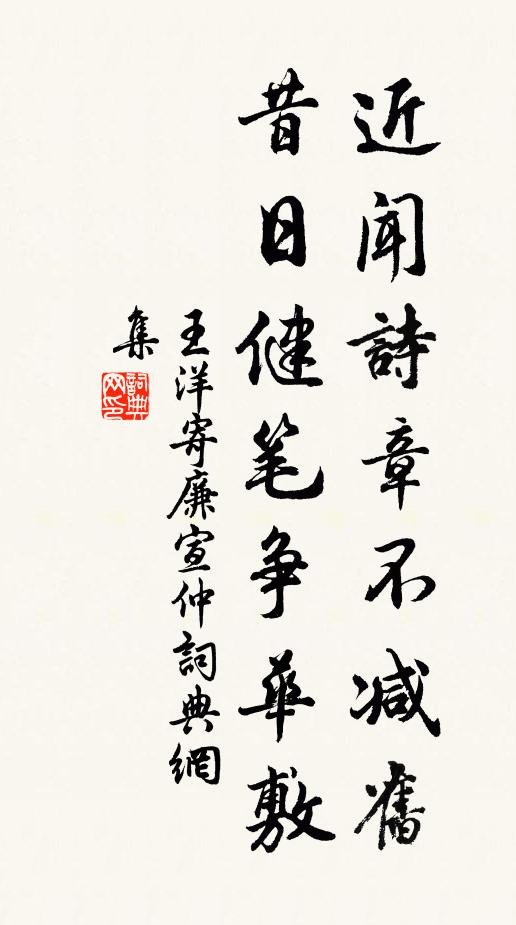 近闻詩章不减舊
昔日健笔争華敷
王洋寄廉宣仲詞典網
集
詞典网印